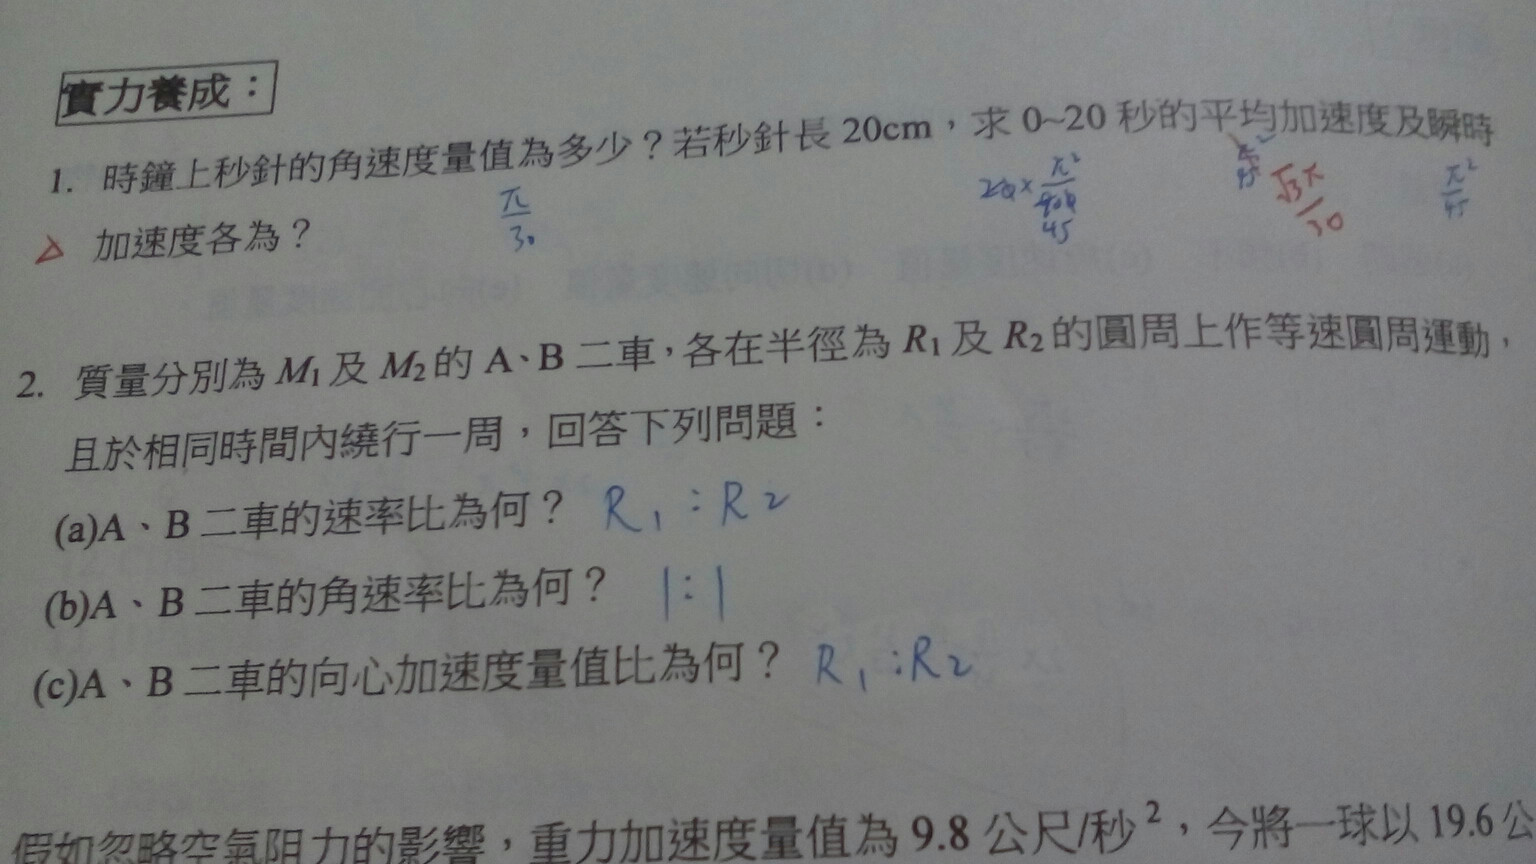 實力養成：
1. 時鐘上秒針的角速度量值為多少？若秒針長 20cm，求 0~20 秒的平均加速度及瞬時
π/30
20×π²/900 45
π²/45
√3π/30
π²/45
加速度各為？
2. 質量分別為 M₁ 及 M₂ 的 A、B 二車，各在半徑為 R₁ 及 R₂ 的圓周上作等速圓周運動，
且於相同時間內繞行一周，回答下列問題：
(a)A、B 二車的速率比為何？ R₁：R₂
(b)A、B 二車的角速率比為何？ 1：1
(c)A、B 二車的向心加速度量值比為何？ R₁：R₂
假如忽略空氣阻力的影響，重力加速度量值為 9.8 公尺/秒²，今將一球以 19.6 公